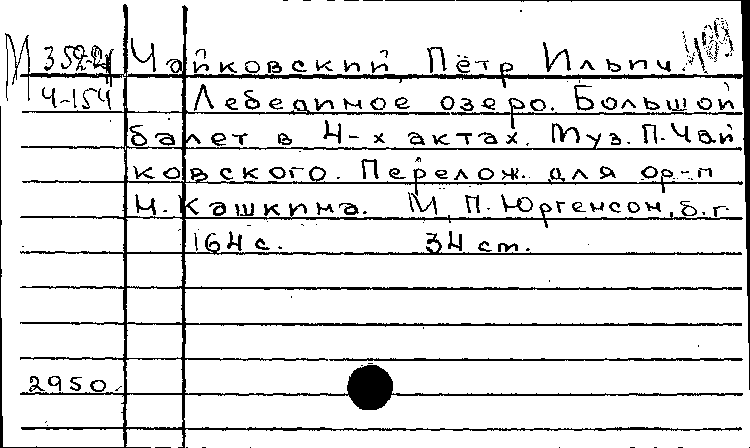 М 352-2 Чайковский, Пётр Ильич
Ч-154 Лебединое озеро. Большой
балет в 4-х актах. Муз. П. Чай
ковского. Перелож. для ф-п
Н. Кашкина. М, П. Юргенсон, б. г.
164 с. 34 ст.
2950.